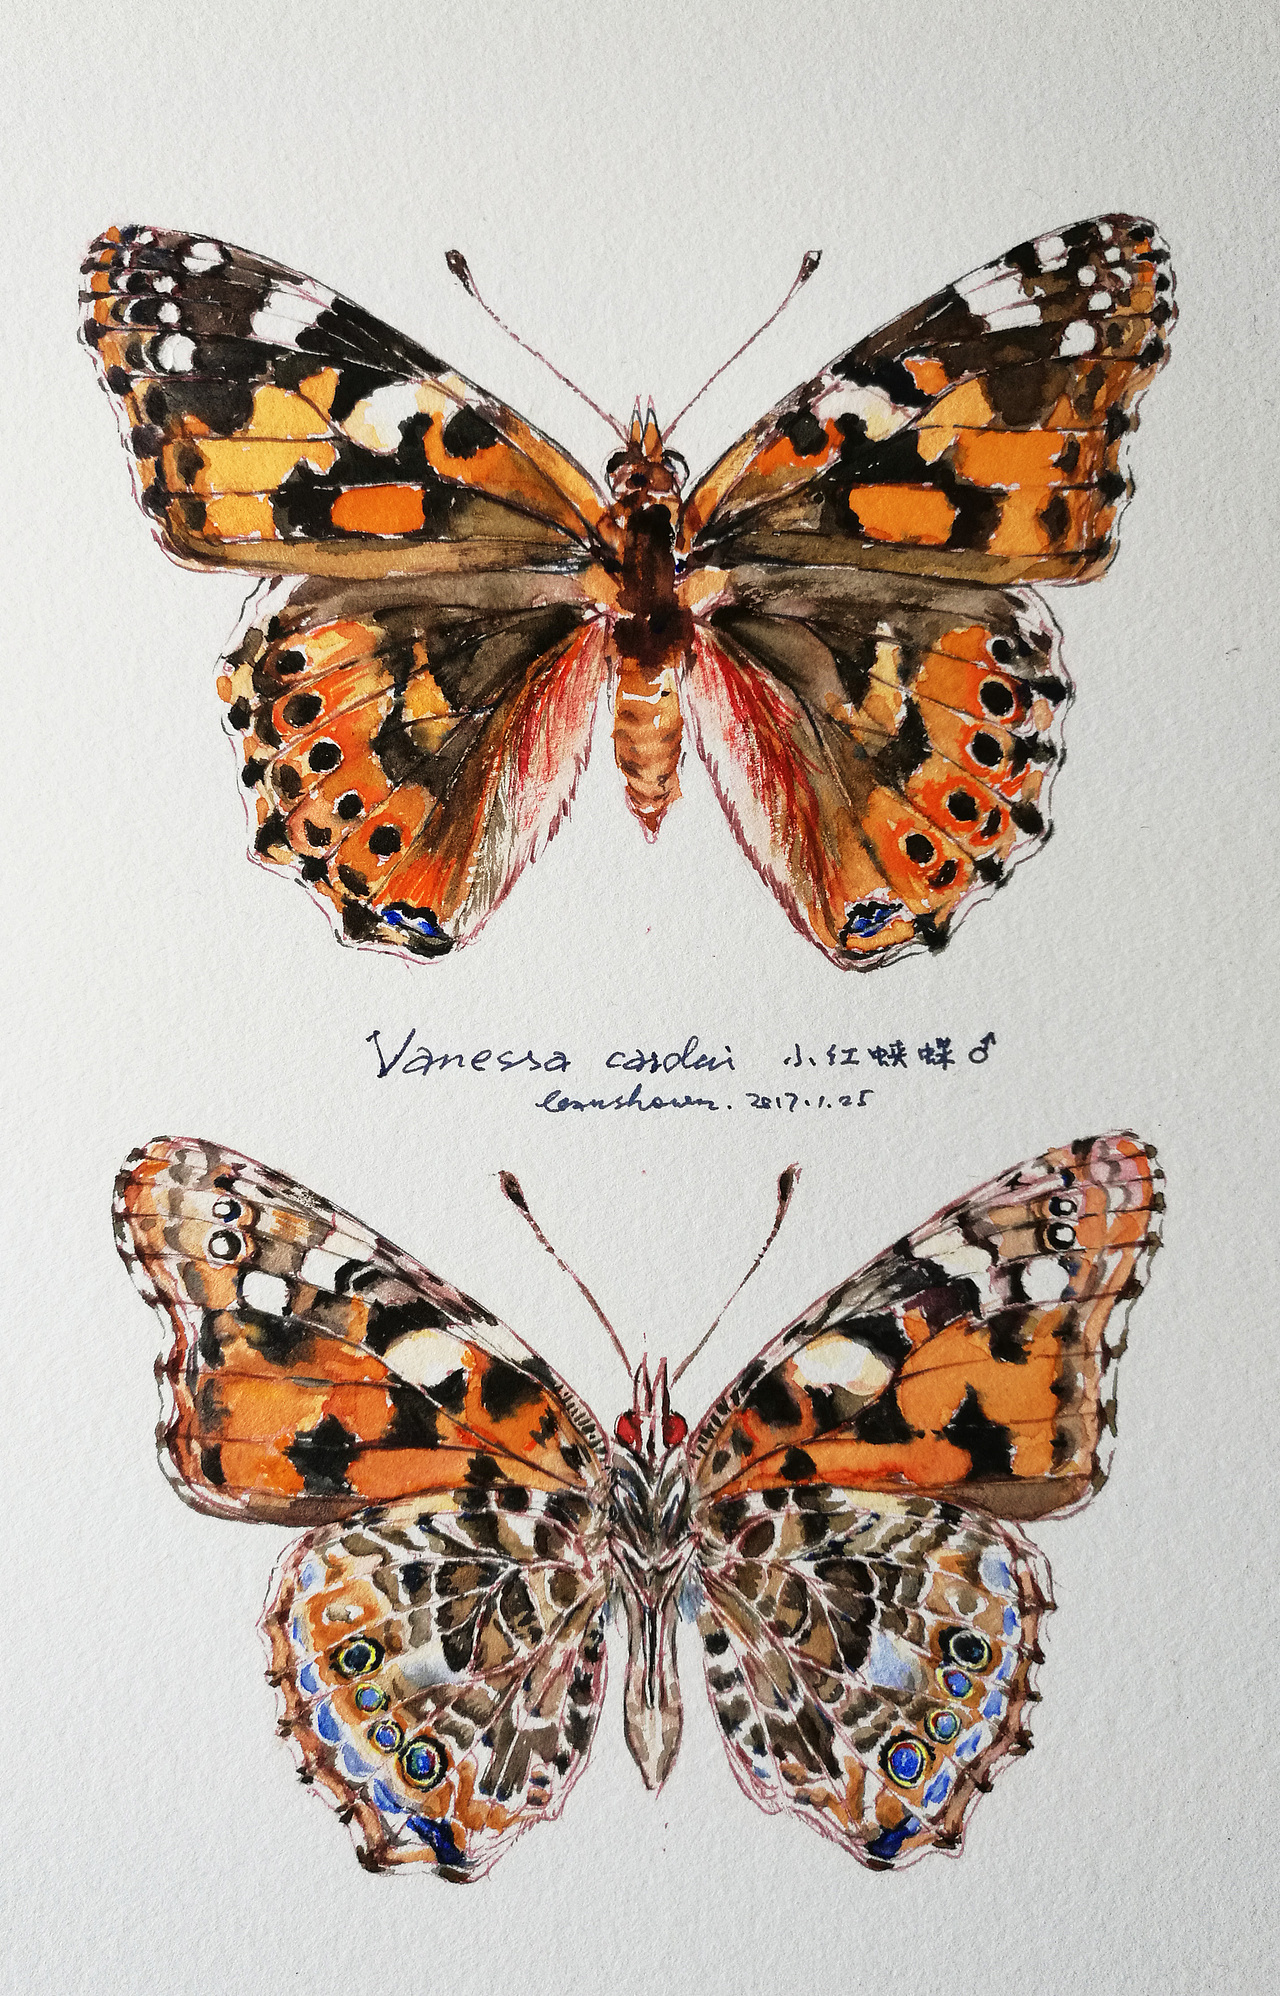 Vanessa cardui 小红蛱蝶♂
leanshown. 2017.1.25